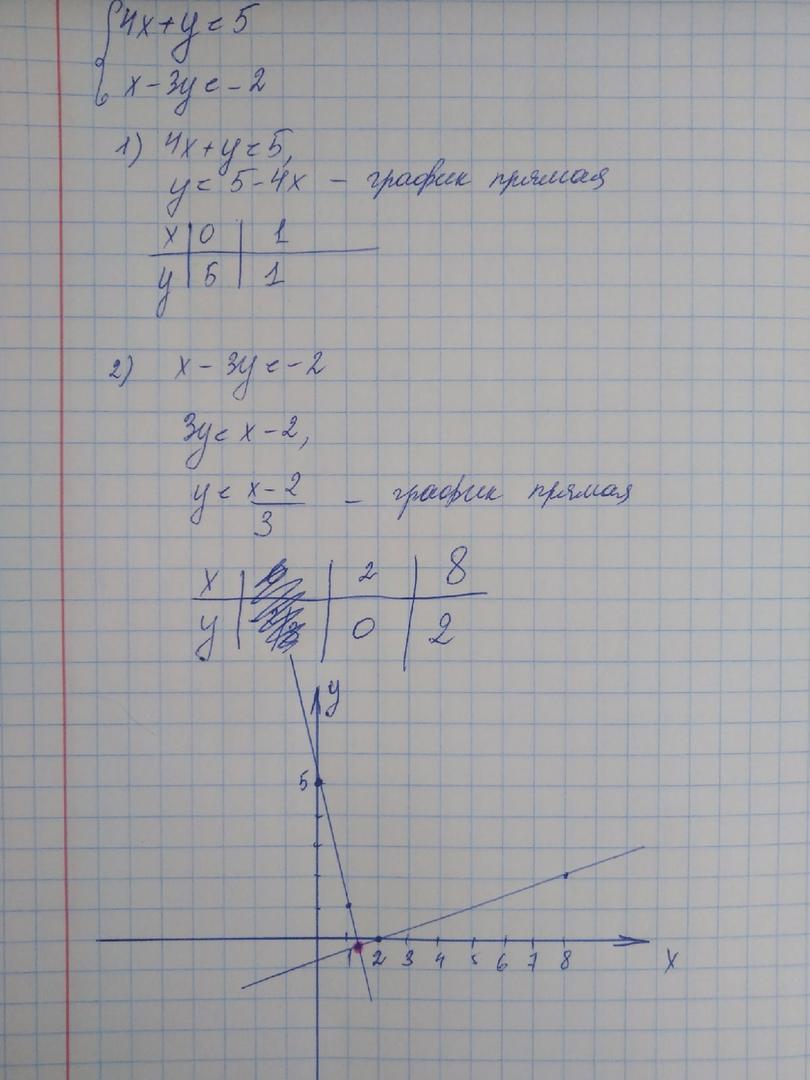 4x+y=5
x-3y=-2
1) 4x+y=5,
y=5-4x - график прямая
x | 0 | 1
y | 5 | 1
2) x-3y=-2
3y=x-2,
y=x-2/3 - график прямая
x | 2 | 8
y | 0 | 2
y
5
1 2 3 4 5 6 7 8 x